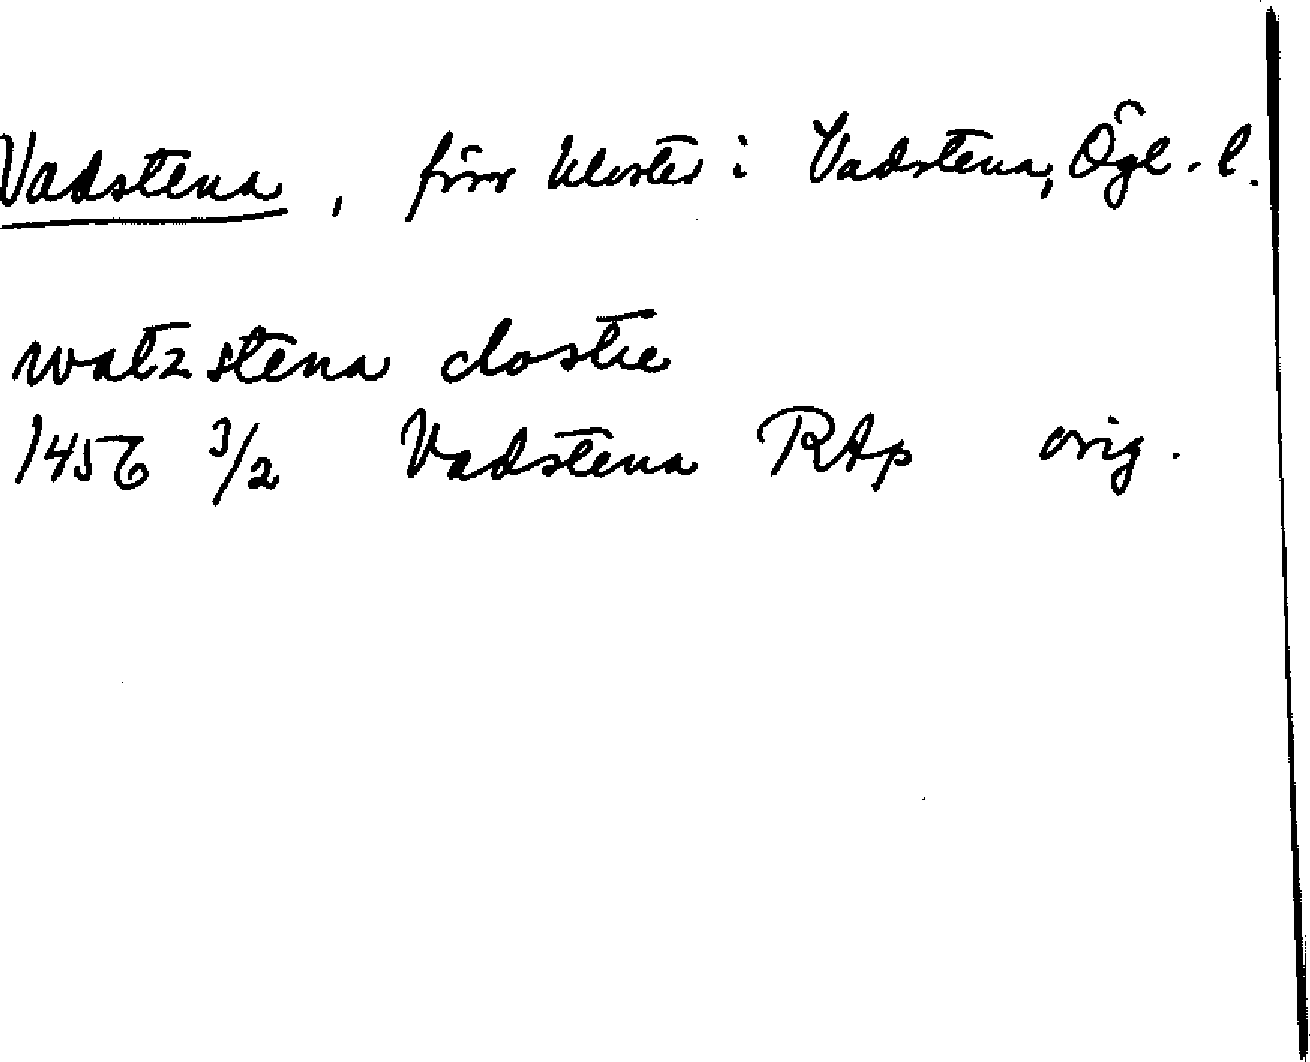 Vadstena, förr kloster i Vadstena, Ögl. l.
watzstena clostre
1456 3/2 Vadstena RAp orig.